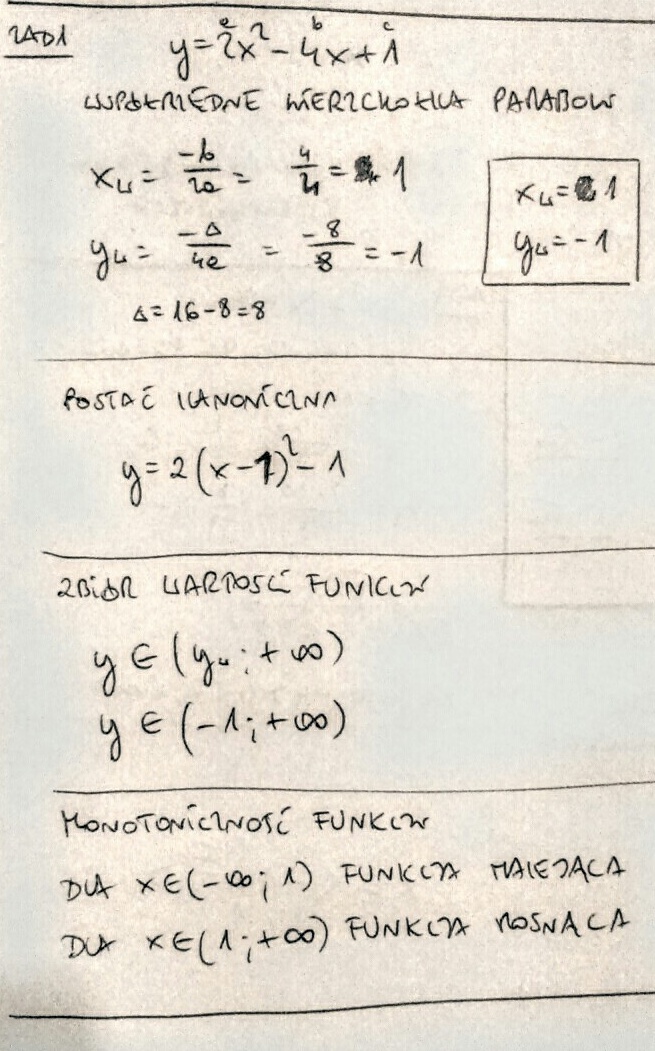 ZAD1
a b c
y = 2x² - 4x + 1
WSPÓŁRZĘDNE WIERZCHOŁKA PARABOLI
x_w = -b/2a = 4/4 = 1
x_w = 1
y_w = -Δ/4a = -8/8 = -1
y_w = -1
Δ = 16 - 8 = 8
POSTAĆ KANONICZNA
y = 2(x - 1)² - 1
ZBIÓR WARTOŚĆ FUNKCJI
y ∈ (y_w ; +∞)
y ∈ (-1 ; +∞)
MONOTONICZNOŚĆ FUNKCJI
DLA x ∈ (-∞ ; 1) FUNKCJA MALEJĄCA
DLA x ∈ (1 ; +∞) FUNKCJA ROSNĄCA